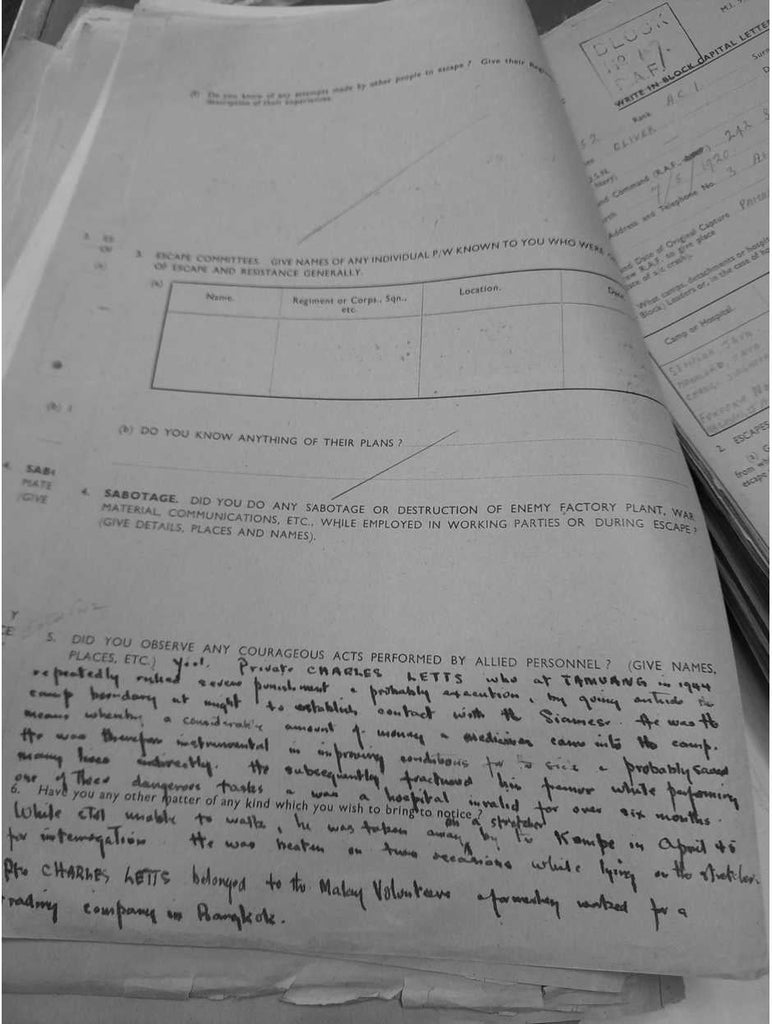 Do you know of any attempts made by other people to escape? Give their
description of their experiences.
3. ESCAPE COMMITTEES. GIVE NAMES OF ANY INDIVIDUAL P/W KNOWN TO YOU WHO WERE
OF ESCAPE AND RESISTANCE GENERALLY.
(a)
Name. Regiment or Corps., Sqn., etc. Location.
(b) DO YOU KNOW ANYTHING OF THEIR PLANS?
4. SABOTAGE. DID YOU DO ANY SABOTAGE OR DESTRUCTION OF ENEMY FACTORY PLANT, WAR
MATERIAL, COMMUNICATIONS, ETC., WHILE EMPLOYED IN WORKING PARTIES OR DURING ESCAPE?
(GIVE DETAILS, PLACES AND NAMES).
5. DID YOU OBSERVE ANY COURAGEOUS ACTS PERFORMED BY ALLIED PERSONNEL? (GIVE NAMES,
PLACES, ETC.) Yes. Private CHARLES LETTS who at TAMUANG in 1944
repeatedly risked severe punishment & probably execution, by going outside the
camp boundary at night to establish contact with the Siamese. He was the
means whereby a considerable amount of money & medicines came into the camp.
He was therefore instrumental in improving conditions for sick & probably saved
many lives indirectly. He subsequently fractured his femur while performing
one of these dangerous tasks & was a hospital invalid for over six months.
6. Have you any other matter of any kind which you wish to bring to notice?
While still unable to walk, he was taken away on a stretcher by the Kempe in April 45
for interrogation. He was beaten on two occasions while lying on the stretcher.
Pte CHARLES LETTS belonged to the Malay Volunteers & formerley worked for a
trading company in Bangkok.
4. SAB
MATE
(GIVE
M.I. 9
BLOCK
R.A.F.
WRITE IN BLOCK CAPITAL LETTE
Rank A.C.1
OLIVER
and Command (R.A.F. 242
7/5/1920
Address and Telephone No. 3
and Date of Original Capture
What camps, detachments or hosp
Block) Leaders or, in the case of ho
Camp or Hospital.
2. ESCAPES
(a)
from wh
escape